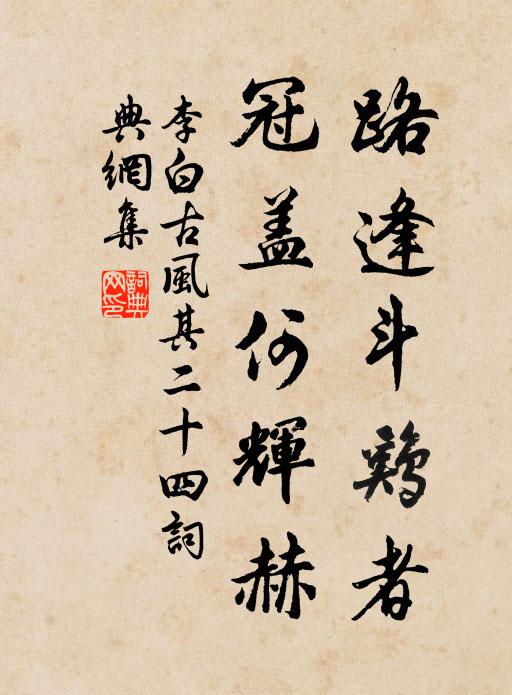 路逢斗鷄者
冠盖何輝赫
李白古風其二十四詞
典網集
詞典
网印